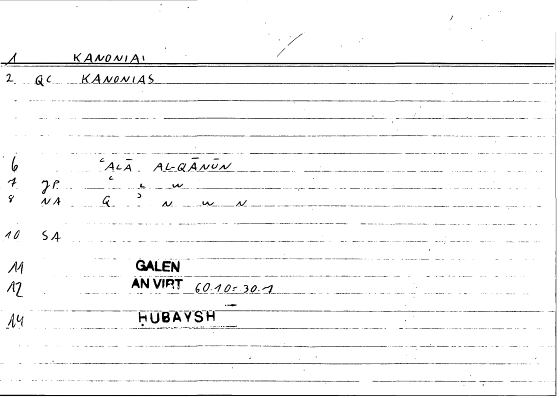 1 KANONIAI
2 QC KANONIAS
6 ʿALĀ AL-QĀNŪN
7 JP ʿ L W
8 NA Q ʾ N W N
10 SA
11 GALEN
12 AN VIRT 60.10 = 30.1
14 ḤUBAYSH